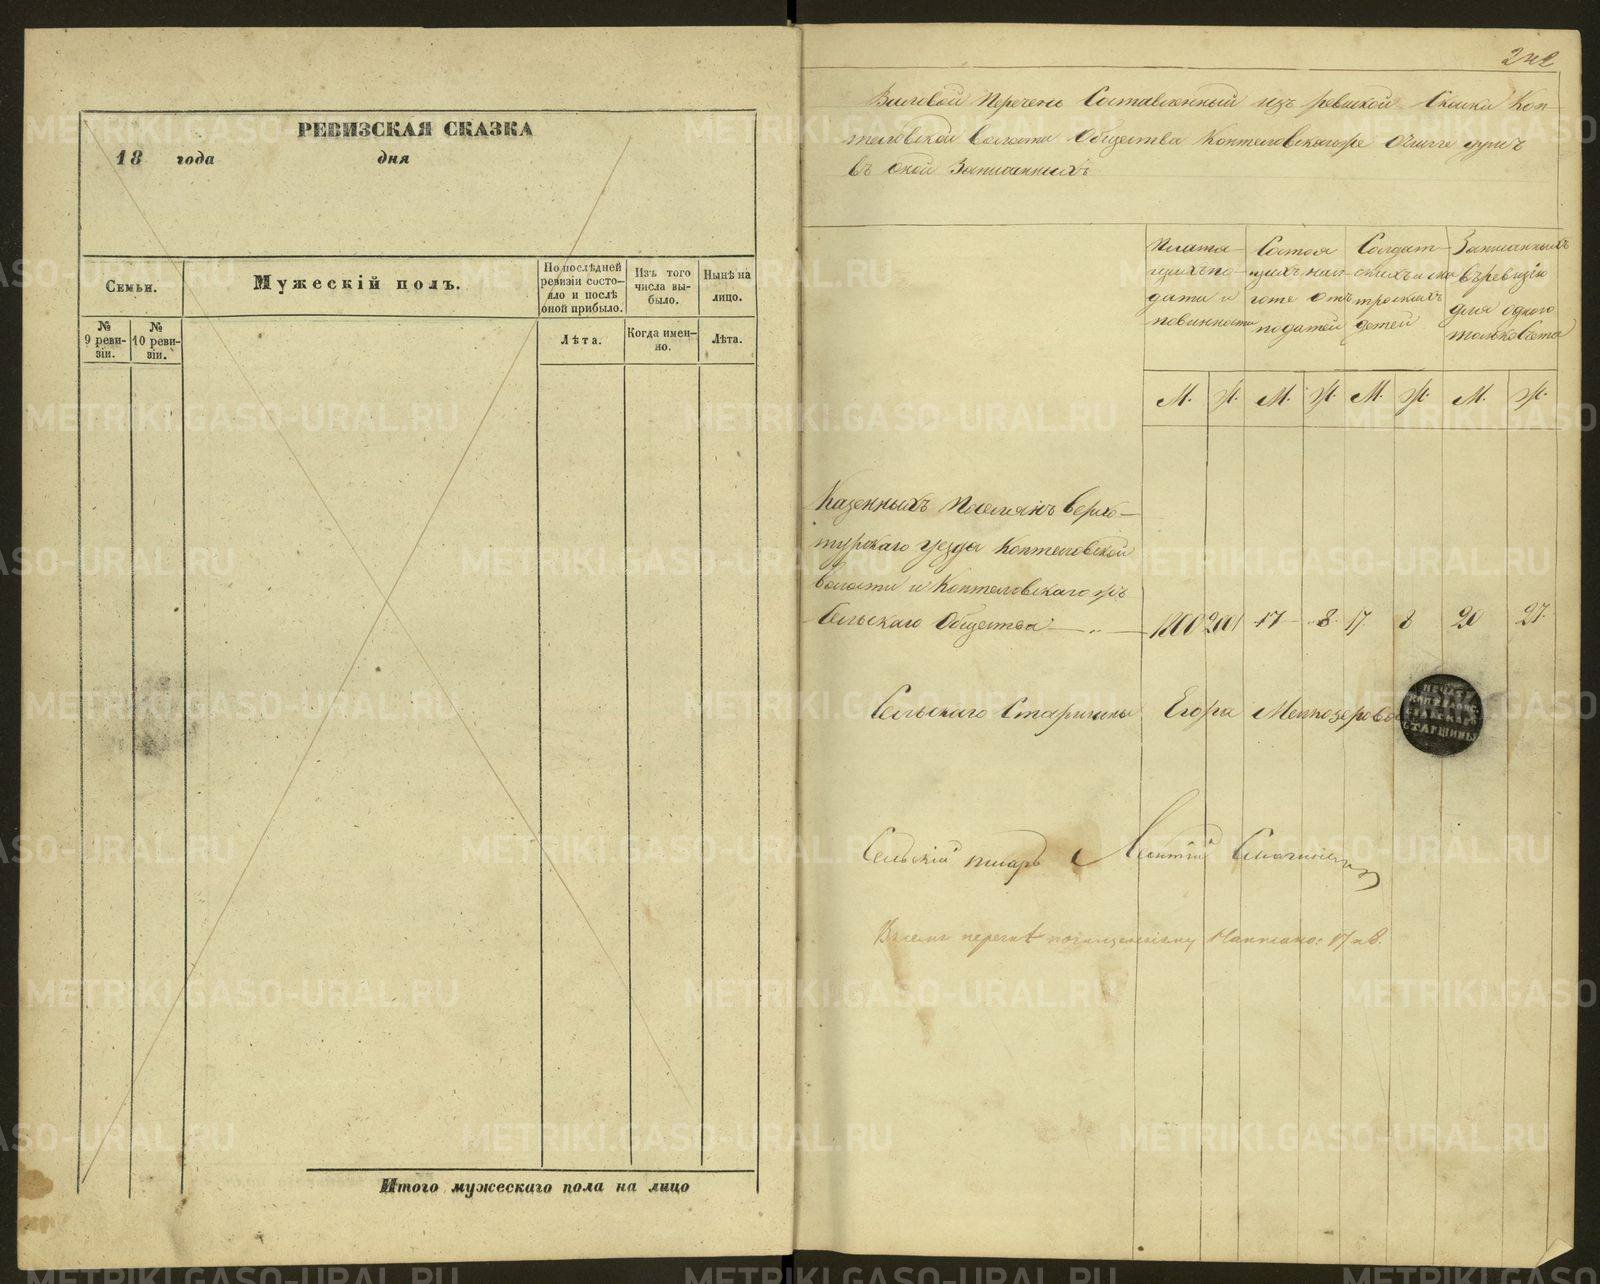 РЕВИЗСКАЯ СКАЗКА
18 года дня
Семьи.
Мужескій полъ.
По послѣдней ревизіи состояло и послѣ оной прибыло.
Изъ того числа выбыло.
Нынѣ на лицо.
№ 9 ревизіи.
№ 10 ревизіи.
Лѣта.
Когда именно.
Лѣта.
Итого мужескаго пола на лицо
242
Перечень Составленный изъ ревизкой Скаски Коп-
теловской волости Общества Коптеловскаго о числе душъ
въ оной Записанныхъ
Платя-
щихъ по-
дати и
повинности
Состоя
щихъ на
льготе отъ
податей
Солдат-
скихъ
детей
Записанныхъ
въ ревизію
для одного
только Счета
М. Ж. М. Ж. М. Ж. М. Ж.
Казенныхъ Поселянъ Верхо-
турскаго уезда Коптеловской
волости и Коптеловскаго
Сельскаго Общества 17 8 17 8 20 27.
Сельскаго Старшины Егора
ПЕЧАТЬ
СТАРШИНЫ
Сельскій писарь Леонтій
17 и 8.
METRIKI.GASO-URAL.RU